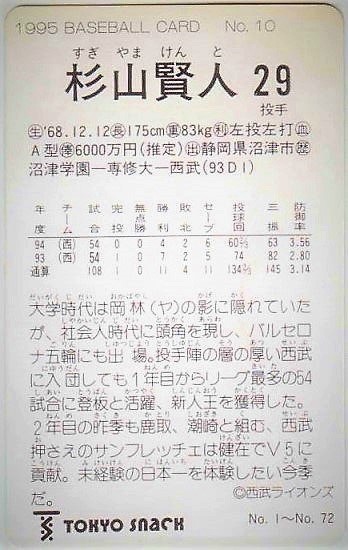 1995 BASEBALL CARD No. 10
すぎ やま けん と
杉山賢人 29
投手
生'68.12.12長175cm重83kg利左投左打血
A型俸6000万円(推定)出静岡県沼津市歴
沼津学園―専修大―西武(93D1)
年度 チーム 試合 完投 無点勝 勝利 敗北 セーブ 投球回 三振 防御率
94 (西) 54 0 0 4 2 6 60⅔ 63 3.56
93 (西) 54 0 0 7 2 5 74 82 2.80
通算 108 0 0 11 4 11 134⅔ 145 3.14
大学時代は岡林(ヤ)の影に隠れていた
が、社会人時代に頭角を現し、バルセロ
ナ五輪にも出場。投手陣の層の厚い西武
に入団しても1年目からリーグ最多の54
試合に登板と活躍、新人王を獲得した。
2年目の昨季も鹿取、潮崎と組む、西武
押さえのサンフレッチェは健在でV5に
貢献。未経験の日本一を体験したい今季
だ。
©西武ライオンズ
TS TOKYO SNACK No. 1〜No. 72